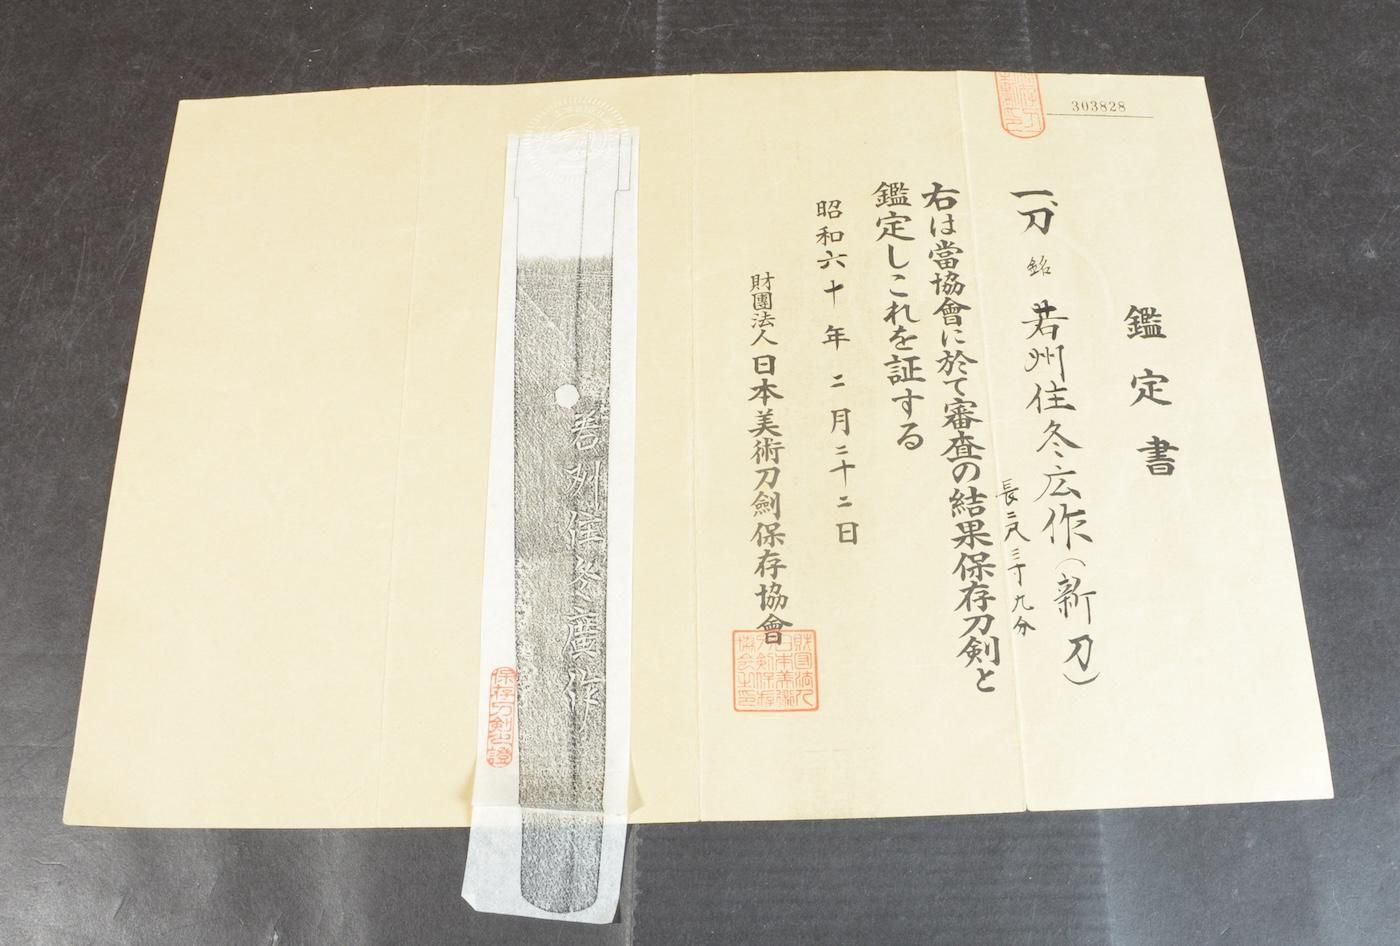 303828
鑑定書
一、刀 銘 若州住冬広作(新刀)
長二尺三寸九分
右は當協會に於て審査の結果保存刀剣と
鑑定しこれを証する
昭和六十年二月二十二日
財團法人日本美術刀劍保存協會
財団法人日本美術刀剣保存協会之印
若州住冬廣作
保存刀剣之證